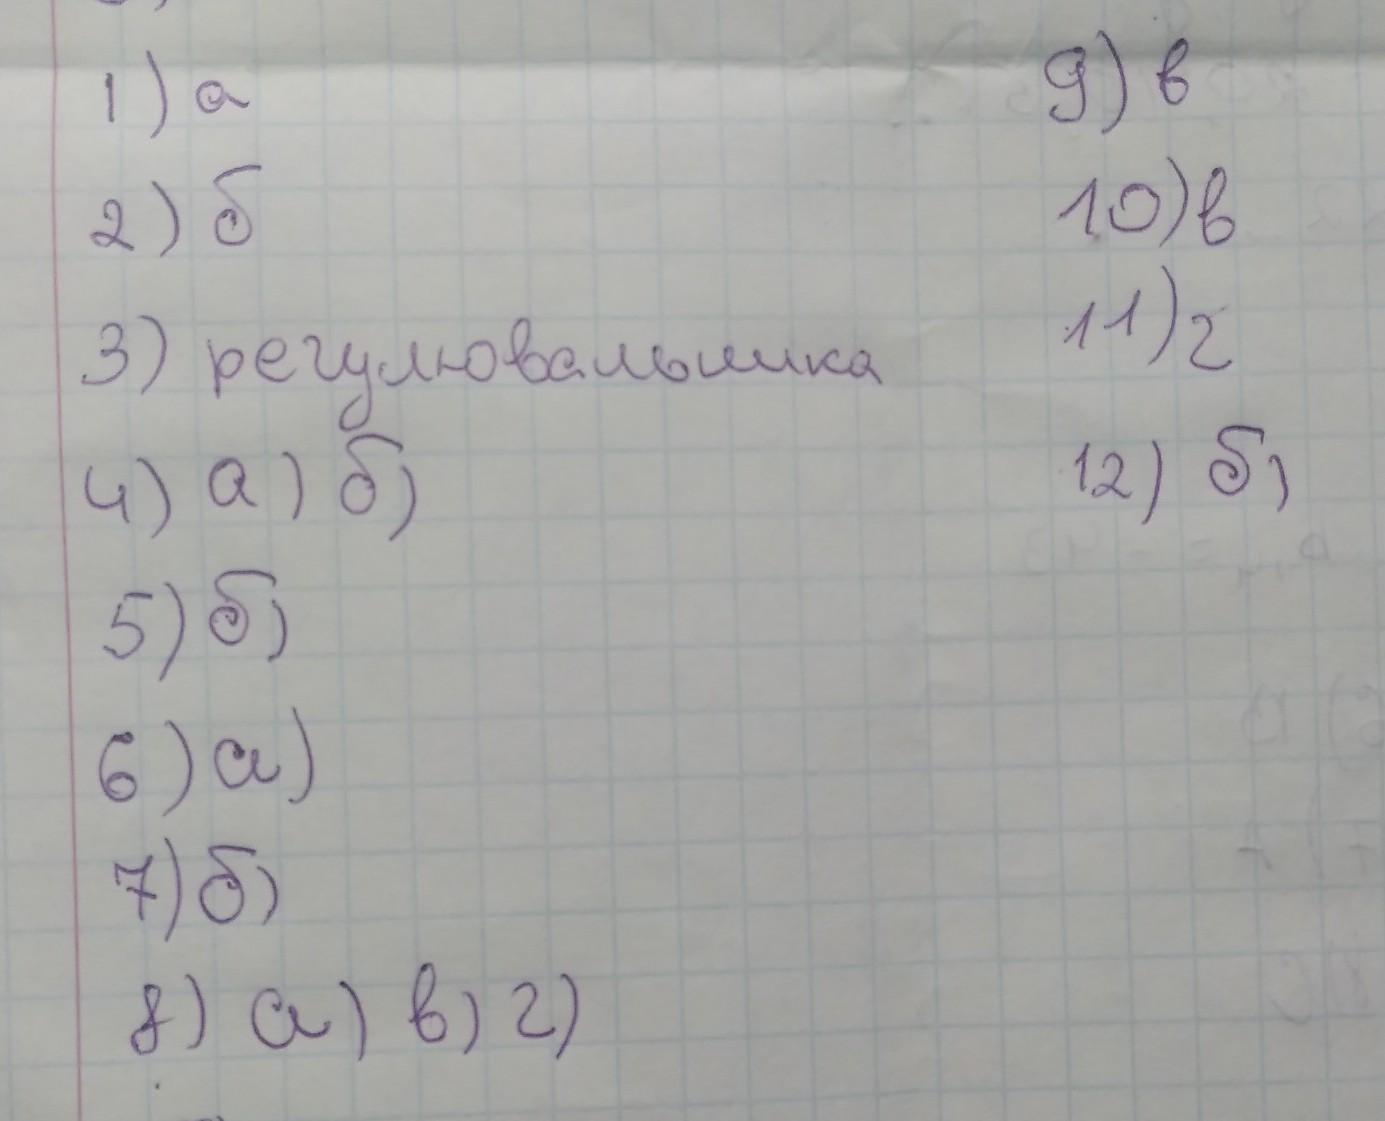 1) а
2) б
3) регулювальника
4) а) б)
5) б)
6) а)
7) б)
8) а) в) г)
9) в
10) в
11) г
12) б)